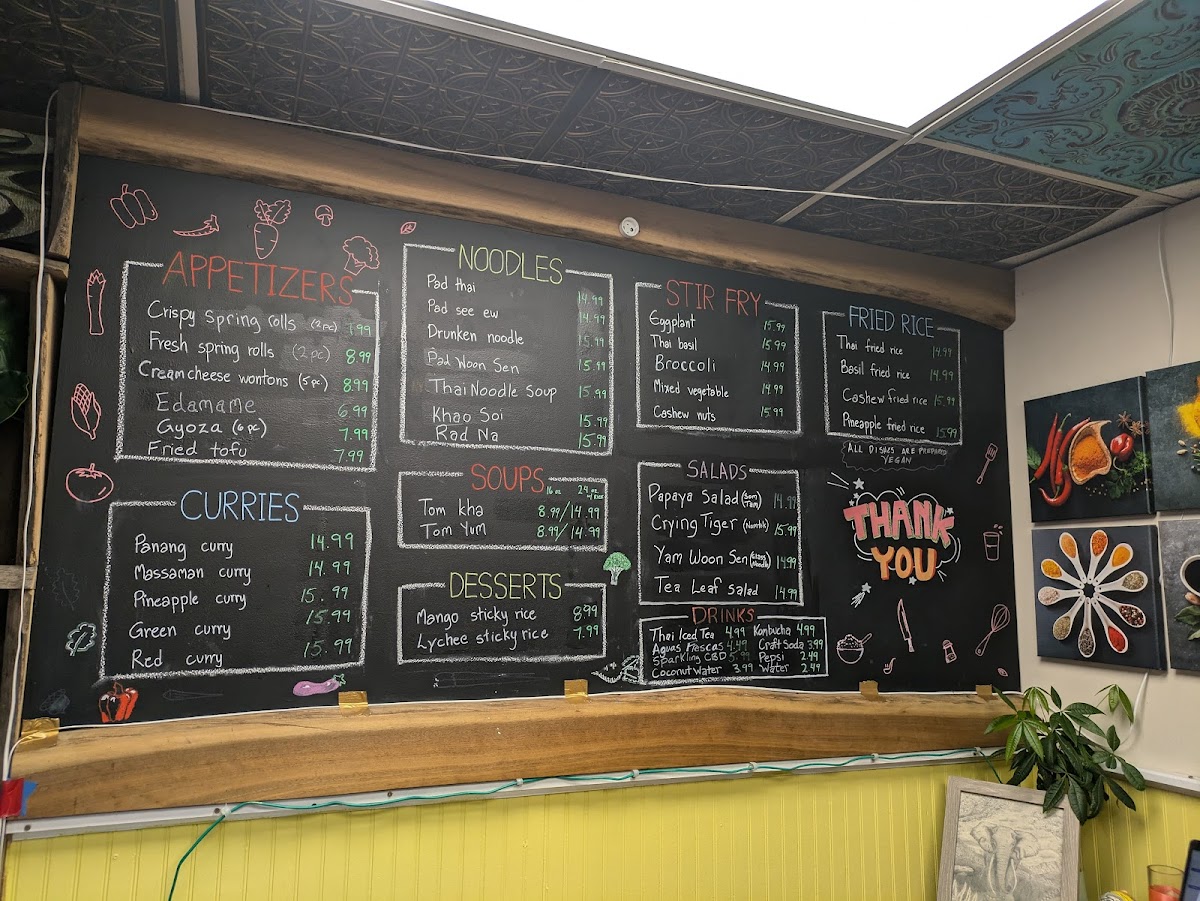 APPETIZERS
Crispy Spring rolls (2pc) 7.99
Fresh spring rolls (2pc) 8.99
Creamcheese wontons (5pc) 8.99
Edamame 6.99
Gyoza (6pc) 7.99
Fried tofu 7.99
CURRIES
Panang curry 14.99
Massaman curry 14.99
Pineapple curry 15.99
Green curry 15.99
Red curry 15.99
NOODLES
Pad thai 14.99
Pad see ew 14.99
Drunken noodle 15.99
Pad Woon Sen 15.99
Thai Noodle Soup 15.99
Khao Soi 15.99
Rad Na 15.99
SOUPS 16 oz 24 oz
Tom kha 8.99/14.99
Tom Yum 8.99/14.99
DESSERTS
Mango sticky rice 8.99
Lychee sticky rice 7.99
STIR FRY
Eggplant 15.99
Thai basil 15.99
Broccoli 14.99
Mixed vegetable 14.99
Cashew nuts 15.99
SALADS
Papaya Salad (Som Tam) 14.99
Crying Tiger 15.99
Yam Woon Sen (Glass Noodle) 14.99
Tea Leaf Salad 14.99
DRINKS
Thai Iced Tea 4.99 Konbucha 4.99
Aguas Frescas 4.49 Craft Soda 3.99
Sparkling CBD 5.99 Pepsi 2.49
Coconut water 3.99 Water 2.49
FRIED RICE
Thai fried rice 14.99
Basil fried rice 14.99
Cashew fried rice 15.99
Pineapple fried rice 15.99
ALL DISHES ARE PREPARED
VEGAN
THANK
YOU